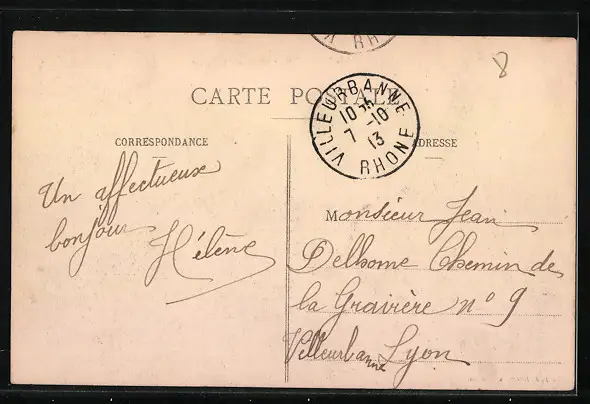 RH
8
CARTE POSTALE
VILLEURBANNE
10 H
7 -10
13
RHONE
CORRESPONDANCE
ADRESSE
Un affectueux
bonjour
Hélène
Monsieur Jean
Delhome Chemin de
la Gravière n° 9
Villeurbanne Lyon